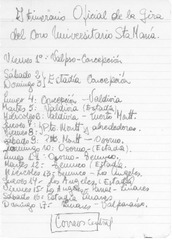 Itinerário Oficial de la Gira
del Coro Universitario Sta María.
Viernes 1º: Valpso - Concepción
Sábado 2
Domingo 3 } Estadía Concepción
Lunes 4: Concepción - Valdivia
Martes 5: Valdivia Estadía
Miércoles 6: Valdivia - Puerto Montt
Jueves 7
Viernes 8: } Pto. Montt y alrededores.
Sábado 9: Pto. Montt - Osorno
Domingo 10: Osorno - (Estadía)
Lunes 11: Osorno - Temuco.
Martes 12: Temuco - Estadía
Miércoles 13: Temuco - Los Angeles
Jueves 14: Los Angeles, (Estadía)
Viernes 15: Los Angeles - Linares
Sábado 16: Estadía Linares
Domingo 17: Linares - Valparaíso.
(Correo Central)